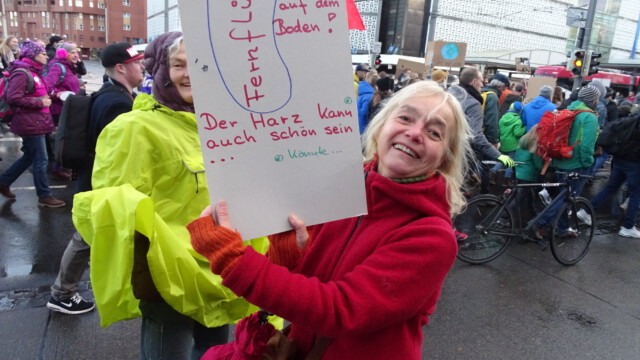 Fernflü
auf dem
Boden!
Der Harz kann
auch schön sein
...
Könnte...